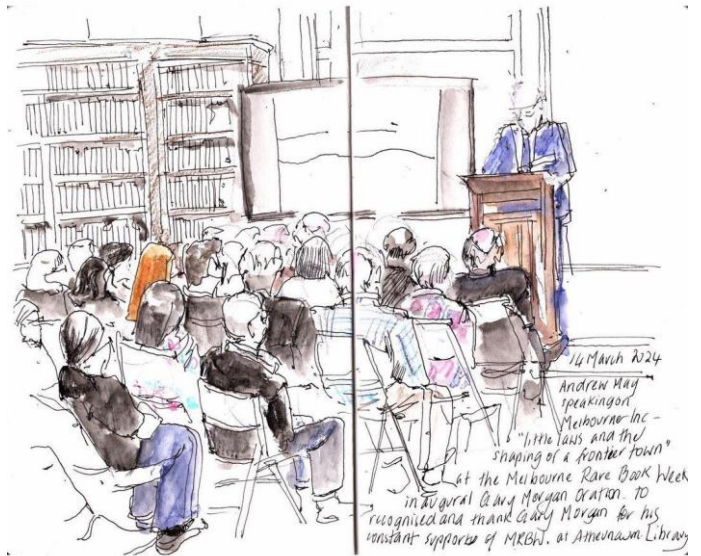 14 March 2024
Andrew May
speaking on
Melbourne Inc -
"little laws and the
shaping of a frontier town"
at the Melbourne Rare Book Week
inaugural Gary Morgan Oration. to
recognised and thank Gary Morgan for his
constant supporte of MRBW. at Athenaeum Library